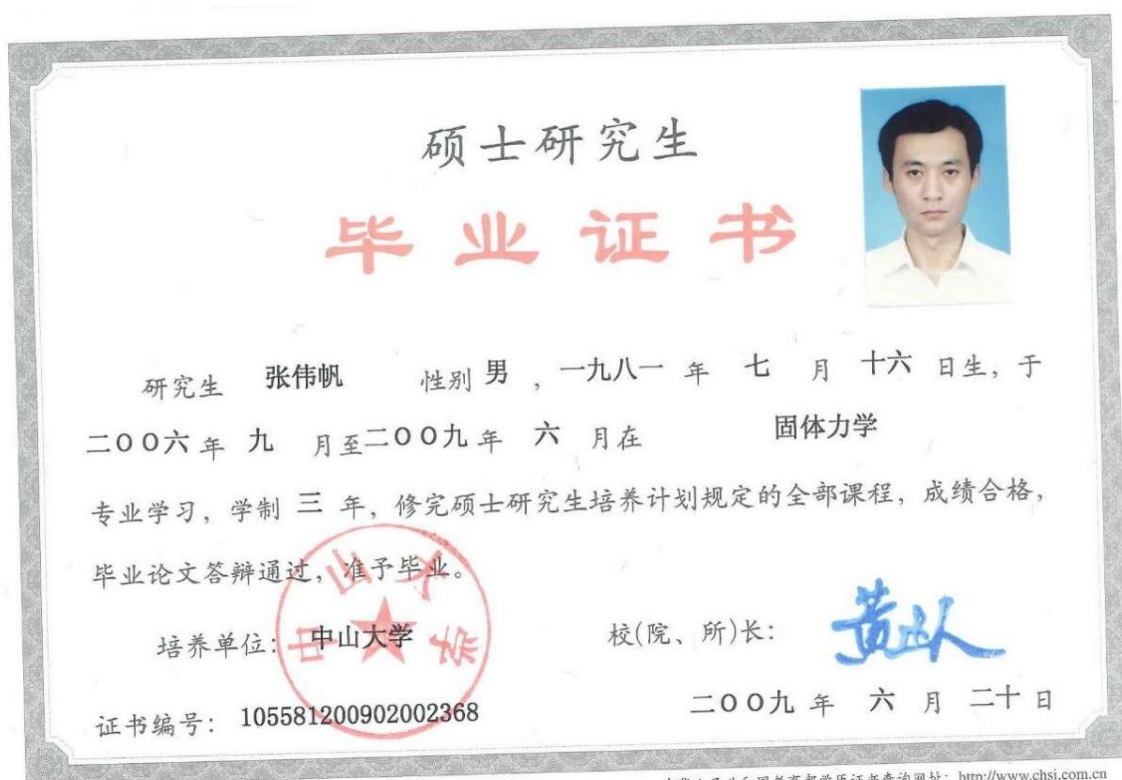 硕士研究生
毕业证书
研究生 张伟帆 性别 男 ，一九八一 年 七 月 十六 日生，于
二００六 年 九 月至二００九 年 六 月在 固体力学
专业学习，学制 三 年，修完硕士研究生培养计划规定的全部课程，成绩合格，
毕业论文答辩通过，准予毕业。
培养单位： 中山大学 校(院、所)长：
中山大学
证书编号： 105581200902002368 二００九 年 六 月 二十 日
学历证书查询网址：http://www.chsi.com.cn